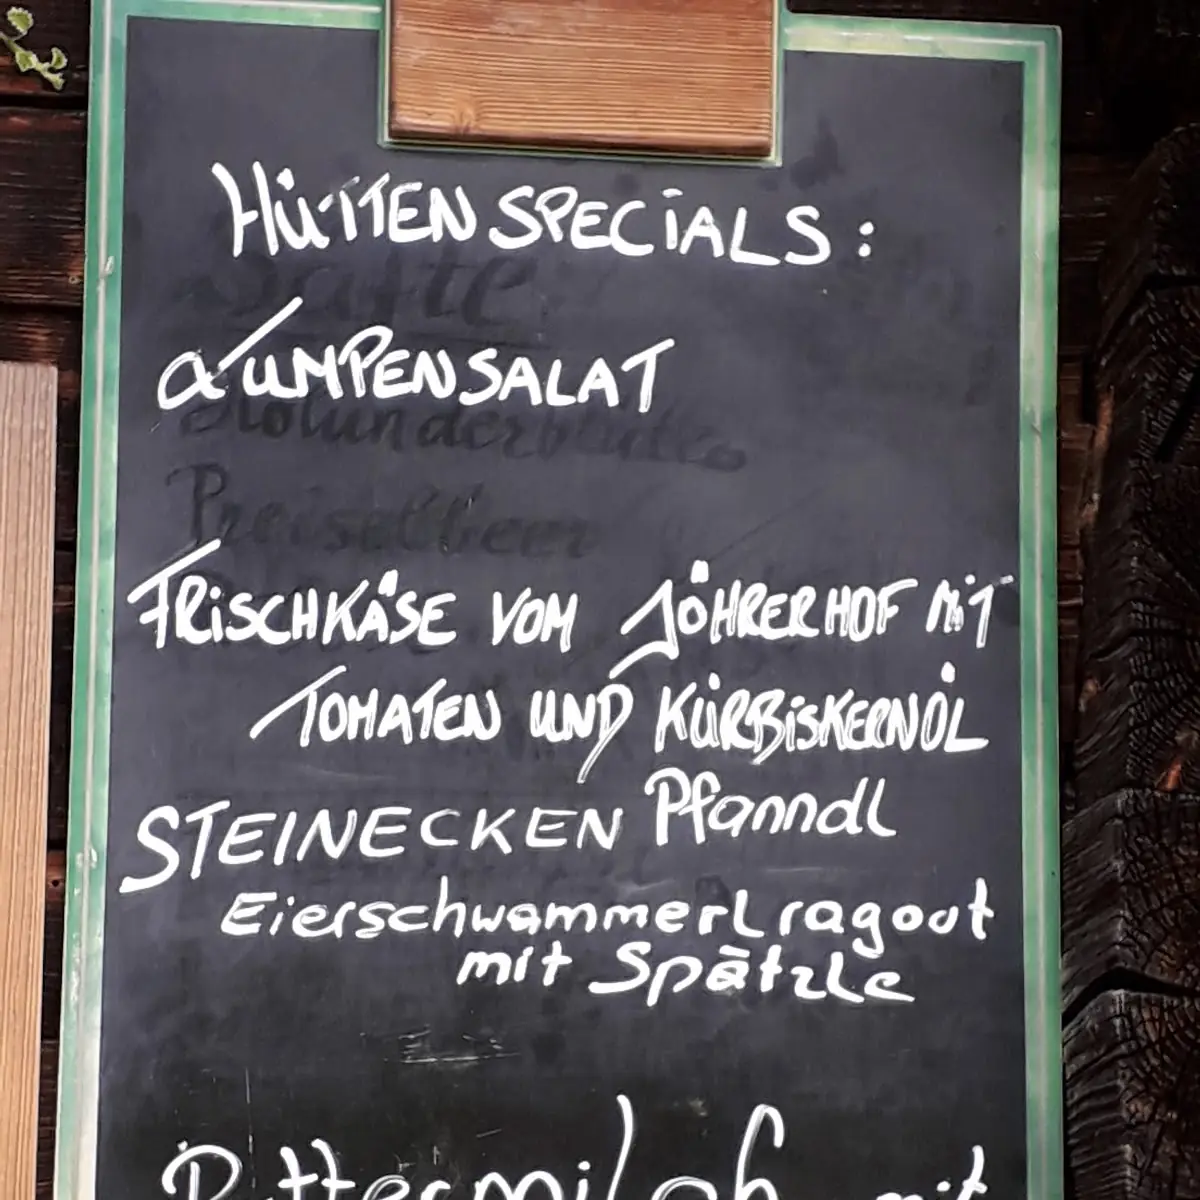 HÜTTENSPECIALS:
LUMPENSALAT
FRISCHKÄSE VOM JÖHRERHOF MIT
TOMATEN UND KÜRBISKERNÖL
STEINECKEN Pfanndl
Eierschwammerlragout
mit Spätzle
Buttermilch mit
Säfte
Holunderblüten
Preiselbeer